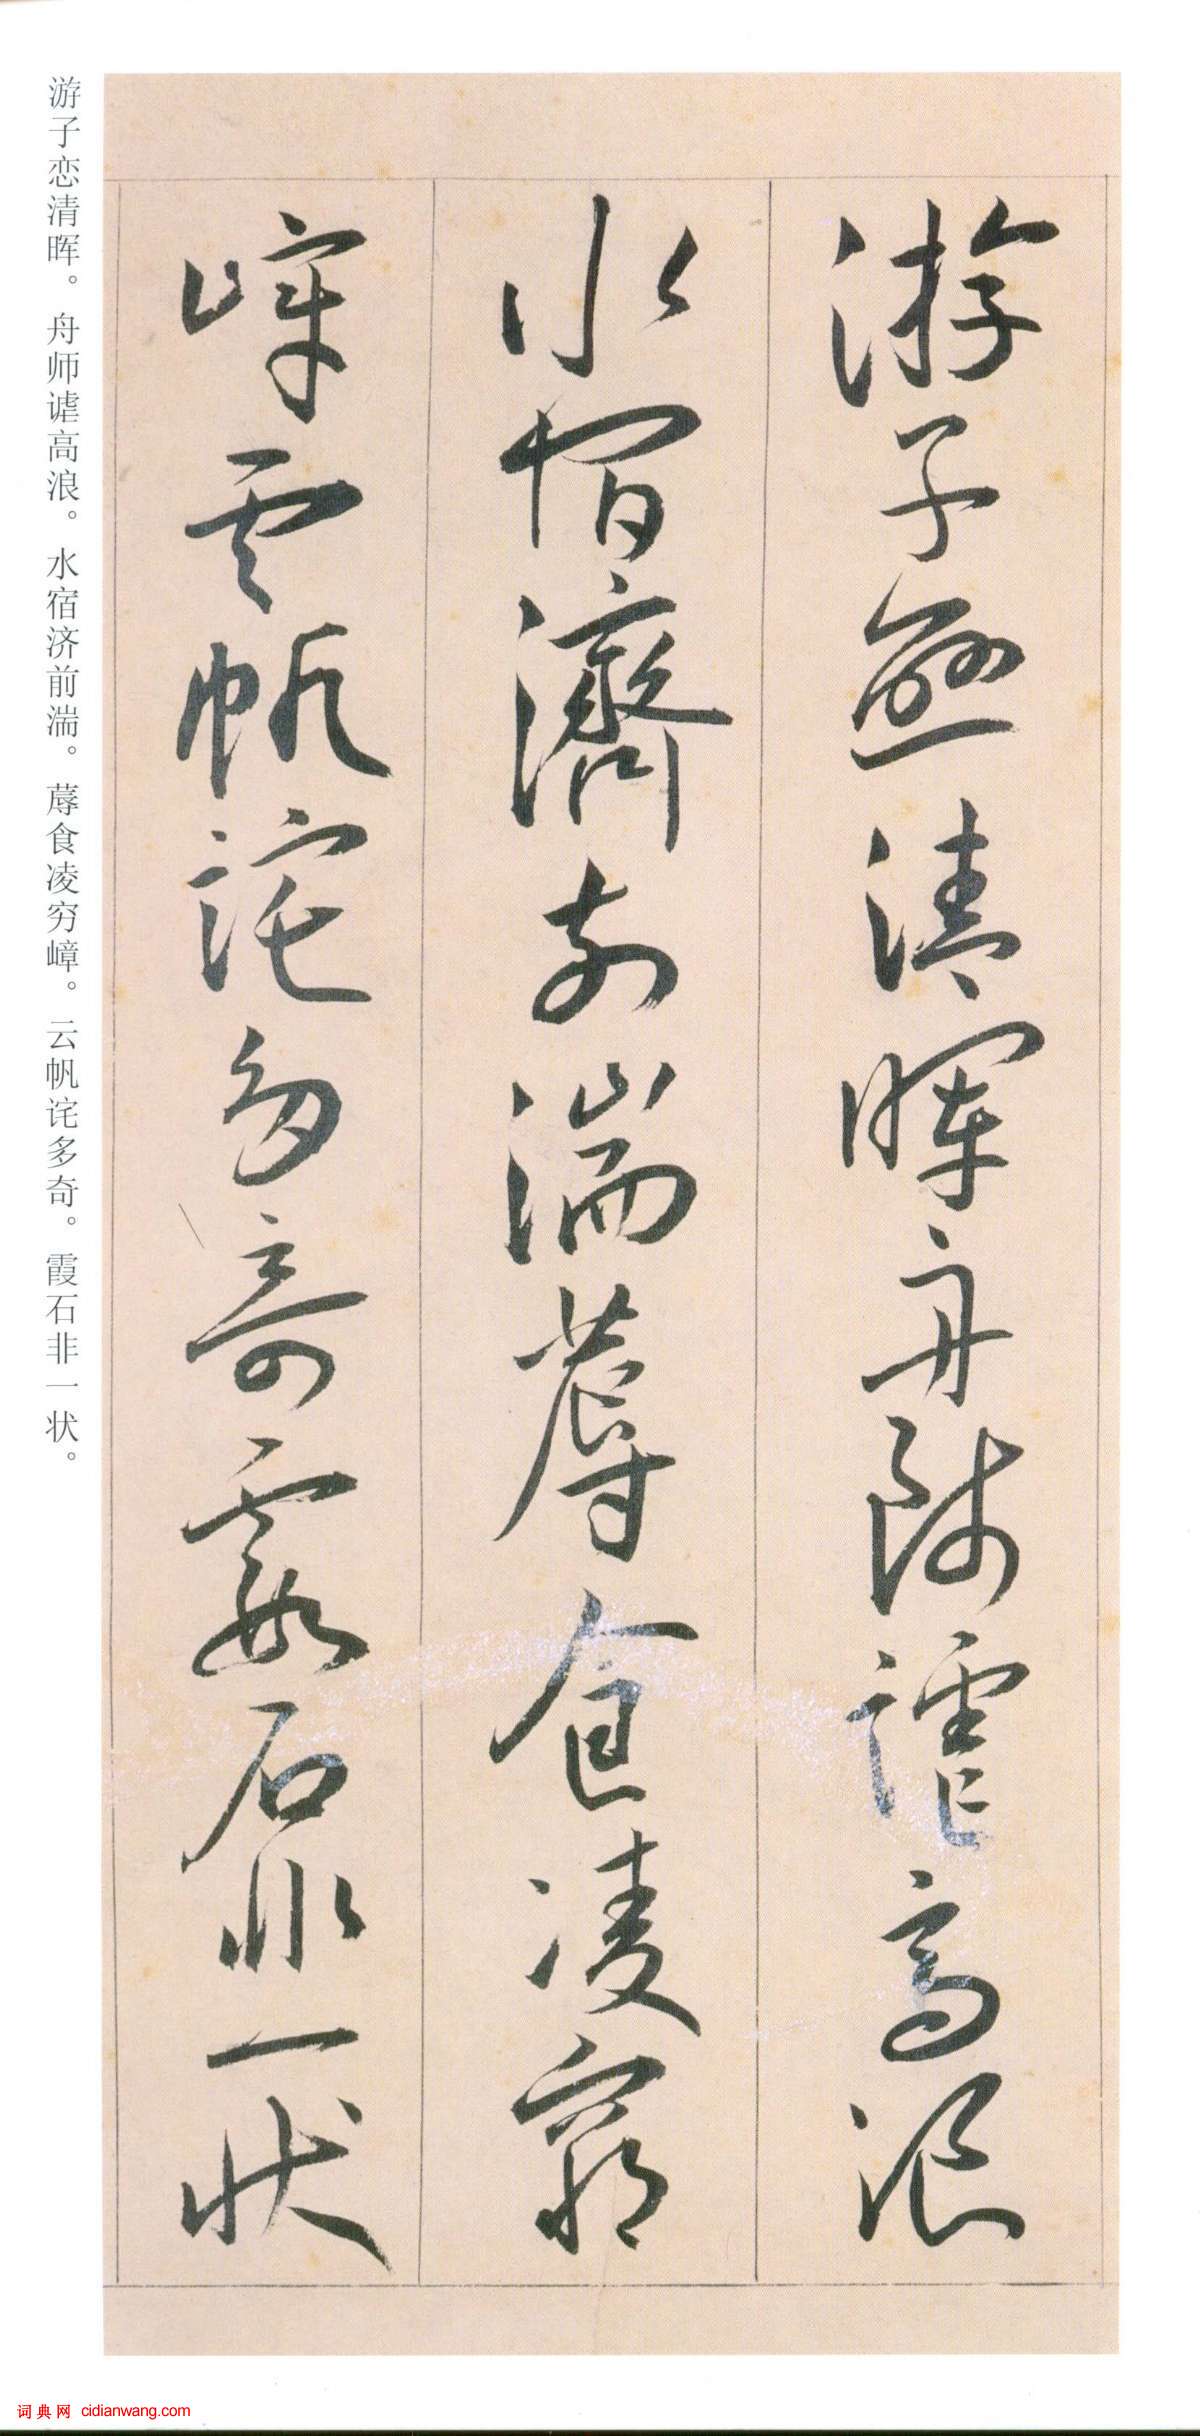 游子戀清暉舟師謔高浪
水宿濟前湍蓐食凌窮
嶂雲帆詫多奇霞石非一狀
游子恋清晖。舟师谑高浪。水宿济前湍。蓐食凌穷嶂。云帆诧多奇。霞石非一状。
词典网 cidianwang.com